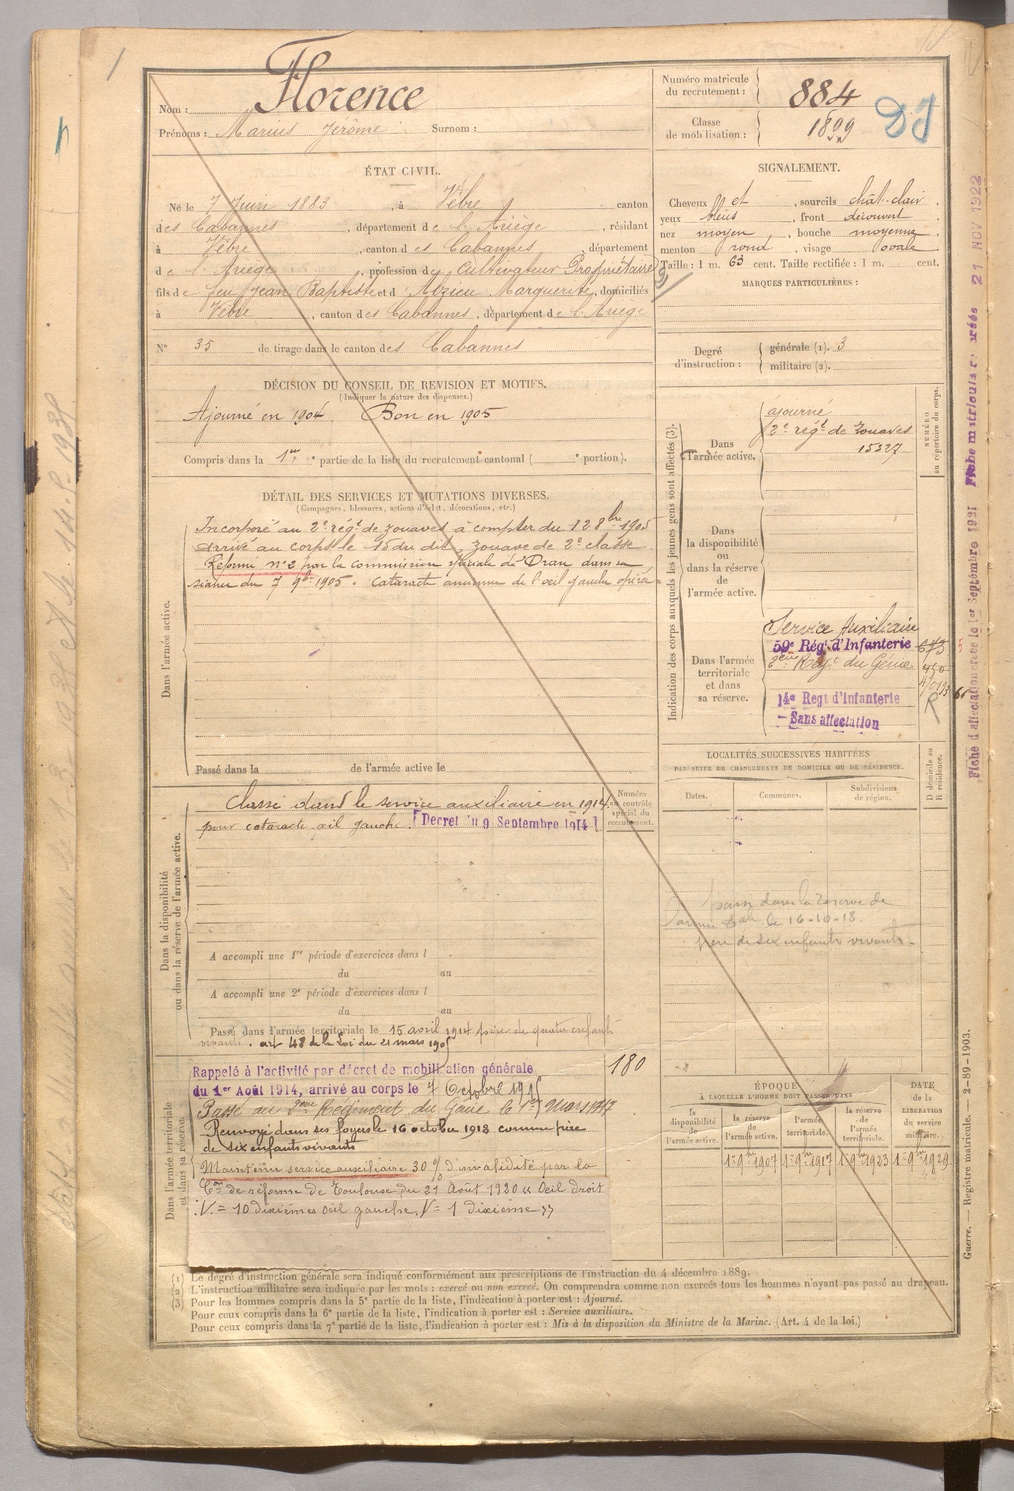 Nom : Florence
Prénoms : Marius Jérôme Surnom :
Numéro matricule
du recrutement : 884
Classe
de mobilisation : 1899
ÉTAT CIVIL.
Né le 7 Juin 1883, à Vèbre canton
des Cabannes, département de l'Ariège, résidant
à Vèbre, canton des Cabannes, département
de l'Ariège, profession de Cultivateur Propriétaire
fils de feu Jean Baptiste et d'Alzieu Marguerite, domiciliés
à Vèbre, canton des Cabannes, département de l'Ariège
N° 35 de tirage dans le canton des Cabannes
SIGNALEMENT.
Cheveux et, sourcils chât. clair
yeux bleus, front découvert
nez moyen, bouche moyenne
menton rond, visage ovale
Taille : 1 m. 63 cent. Taille rectifiée : 1 m. cent.
MARQUES PARTICULIÈRES :
Degré
d'instruction :
générale (1). 3
militaire (2).
DÉCISION DU CONSEIL DE REVISION ET MOTIFS.
(Indiquer la nature des dispenses.)
Ajourné en 1904. Bon en 1905
Compris dans la 1re partie de la liste du recrutement cantonal ( e portion).
DÉTAIL DES SERVICES ET MUTATIONS DIVERSES.
(Campagnes, blessures, actions d'éclat, décorations, etc.)
Dans l'armée active.
Incorporé au 2e régt de zouaves à compter du 12 8bre 1905
arrivé au corps le 15 du dit, zouave de 2e classe
Réformé n°2 par la commission spéciale d'Oran dans sa
séance du 7 9bre 1905. Cataracte ancienne de l'oeil gauche opérée
Passé dans la de l'armée active le
Indication des corps auxquels les jeunes gens sont affectés (3).
NUMÉRO
au répertoire du corps.
Dans
l'armée active.
ajourné
2e régt de zouaves
15327
Dans
la disponibilité
ou
dans la réserve
de
l'armée active.
Dans l'armée
territoriale
et dans
sa réserve.
Service Auxiliaire
59e Rég. d'Infanterie
2ème Régt du Génie
14e Regt d'Infanterie
- Sans affectation
R
LOCALITÉS SUCCESSIVES HABITÉES
PAR SUITE DE CHANGEMENTS DE DOMICILE OU DE RÉSIDENCE.
Dates. Communes. Subdivisions
de région.
D domicile ou
R résidence.
passé dans la réserve de
l'armée tale le 16-10-18.
père de six enfants vivants.
Dans la disponibilité
ou dans la réserve de l'armée active.
Numéro
au contrôle
spécial du
recrutement.
Classé dans le service auxiliaire en 1914
pour cataracte œil gauche. [Décret du 9 Septembre 1914]
A accompli une 1re période d'exercices dans l
du au
A accompli une 2e période d'exercices dans l
du au
Passé dans l'armée territoriale le 15 avril 1914 père de quatre enfants
vivants. art 48 de la Loi du 21 mars 1905
Dans l'armée territoriale
et dans sa réserve.
180
Rappelé à l'activité par décret de mobilisation générale
du 1er Août 1914, arrivé au corps le 7 Octobre 1915
Passé au 2me Régiment du Génie le 1er Mars 1917
Renvoyé dans ses foyers le 16 octobre 1918 comme père
de six enfants vivants
Maintenu service auxiliaire 30% d'invalidité par la
Con de réforme de Toulouse du 21 Août 1920 « Oeil droit
V. = 10 dixièmes oeil gauche, V = 1 dixième »
ÉPOQUE
À LAQUELLE L'HOMME DOIT PASSER DANS
la
disponibilité
de
l'armée active.
la réserve
de
l'armée active.
l'armée
territoriale.
la réserve
de
l'armée
territoriale.
DATE
de la
LIBÉRATION
du service
militaire.
1er 9bre 1907 1er 9bre 1917 1er 9bre 1923 1er 9bre 1929
(1) Le degré d'instruction générale sera indiqué conformément aux prescriptions de l'instruction du 4 décembre 1889.
(2) L'instruction militaire sera indiquée par les mots : exercé ou non exercé. On comprendra comme non exercés tous les hommes n'ayant pas passé au drapeau.
(3) Pour les hommes compris dans la 5e partie de la liste, l'indication à porter est : Ajourné.
Pour ceux compris dans la 6e partie de la liste, l'indication à porter est : Service auxiliaire.
Pour ceux compris dans la 7e partie de la liste, l'indication à porter est : Mis à la disposition du Ministre de la Marine. (Art. 4 de la loi.)
Fiche d'affectation créée le 1er Septembre 1921 Fiche matricule créée 21 NOV 1922
Guerre. — Registre matricule. — 2-89-1903.